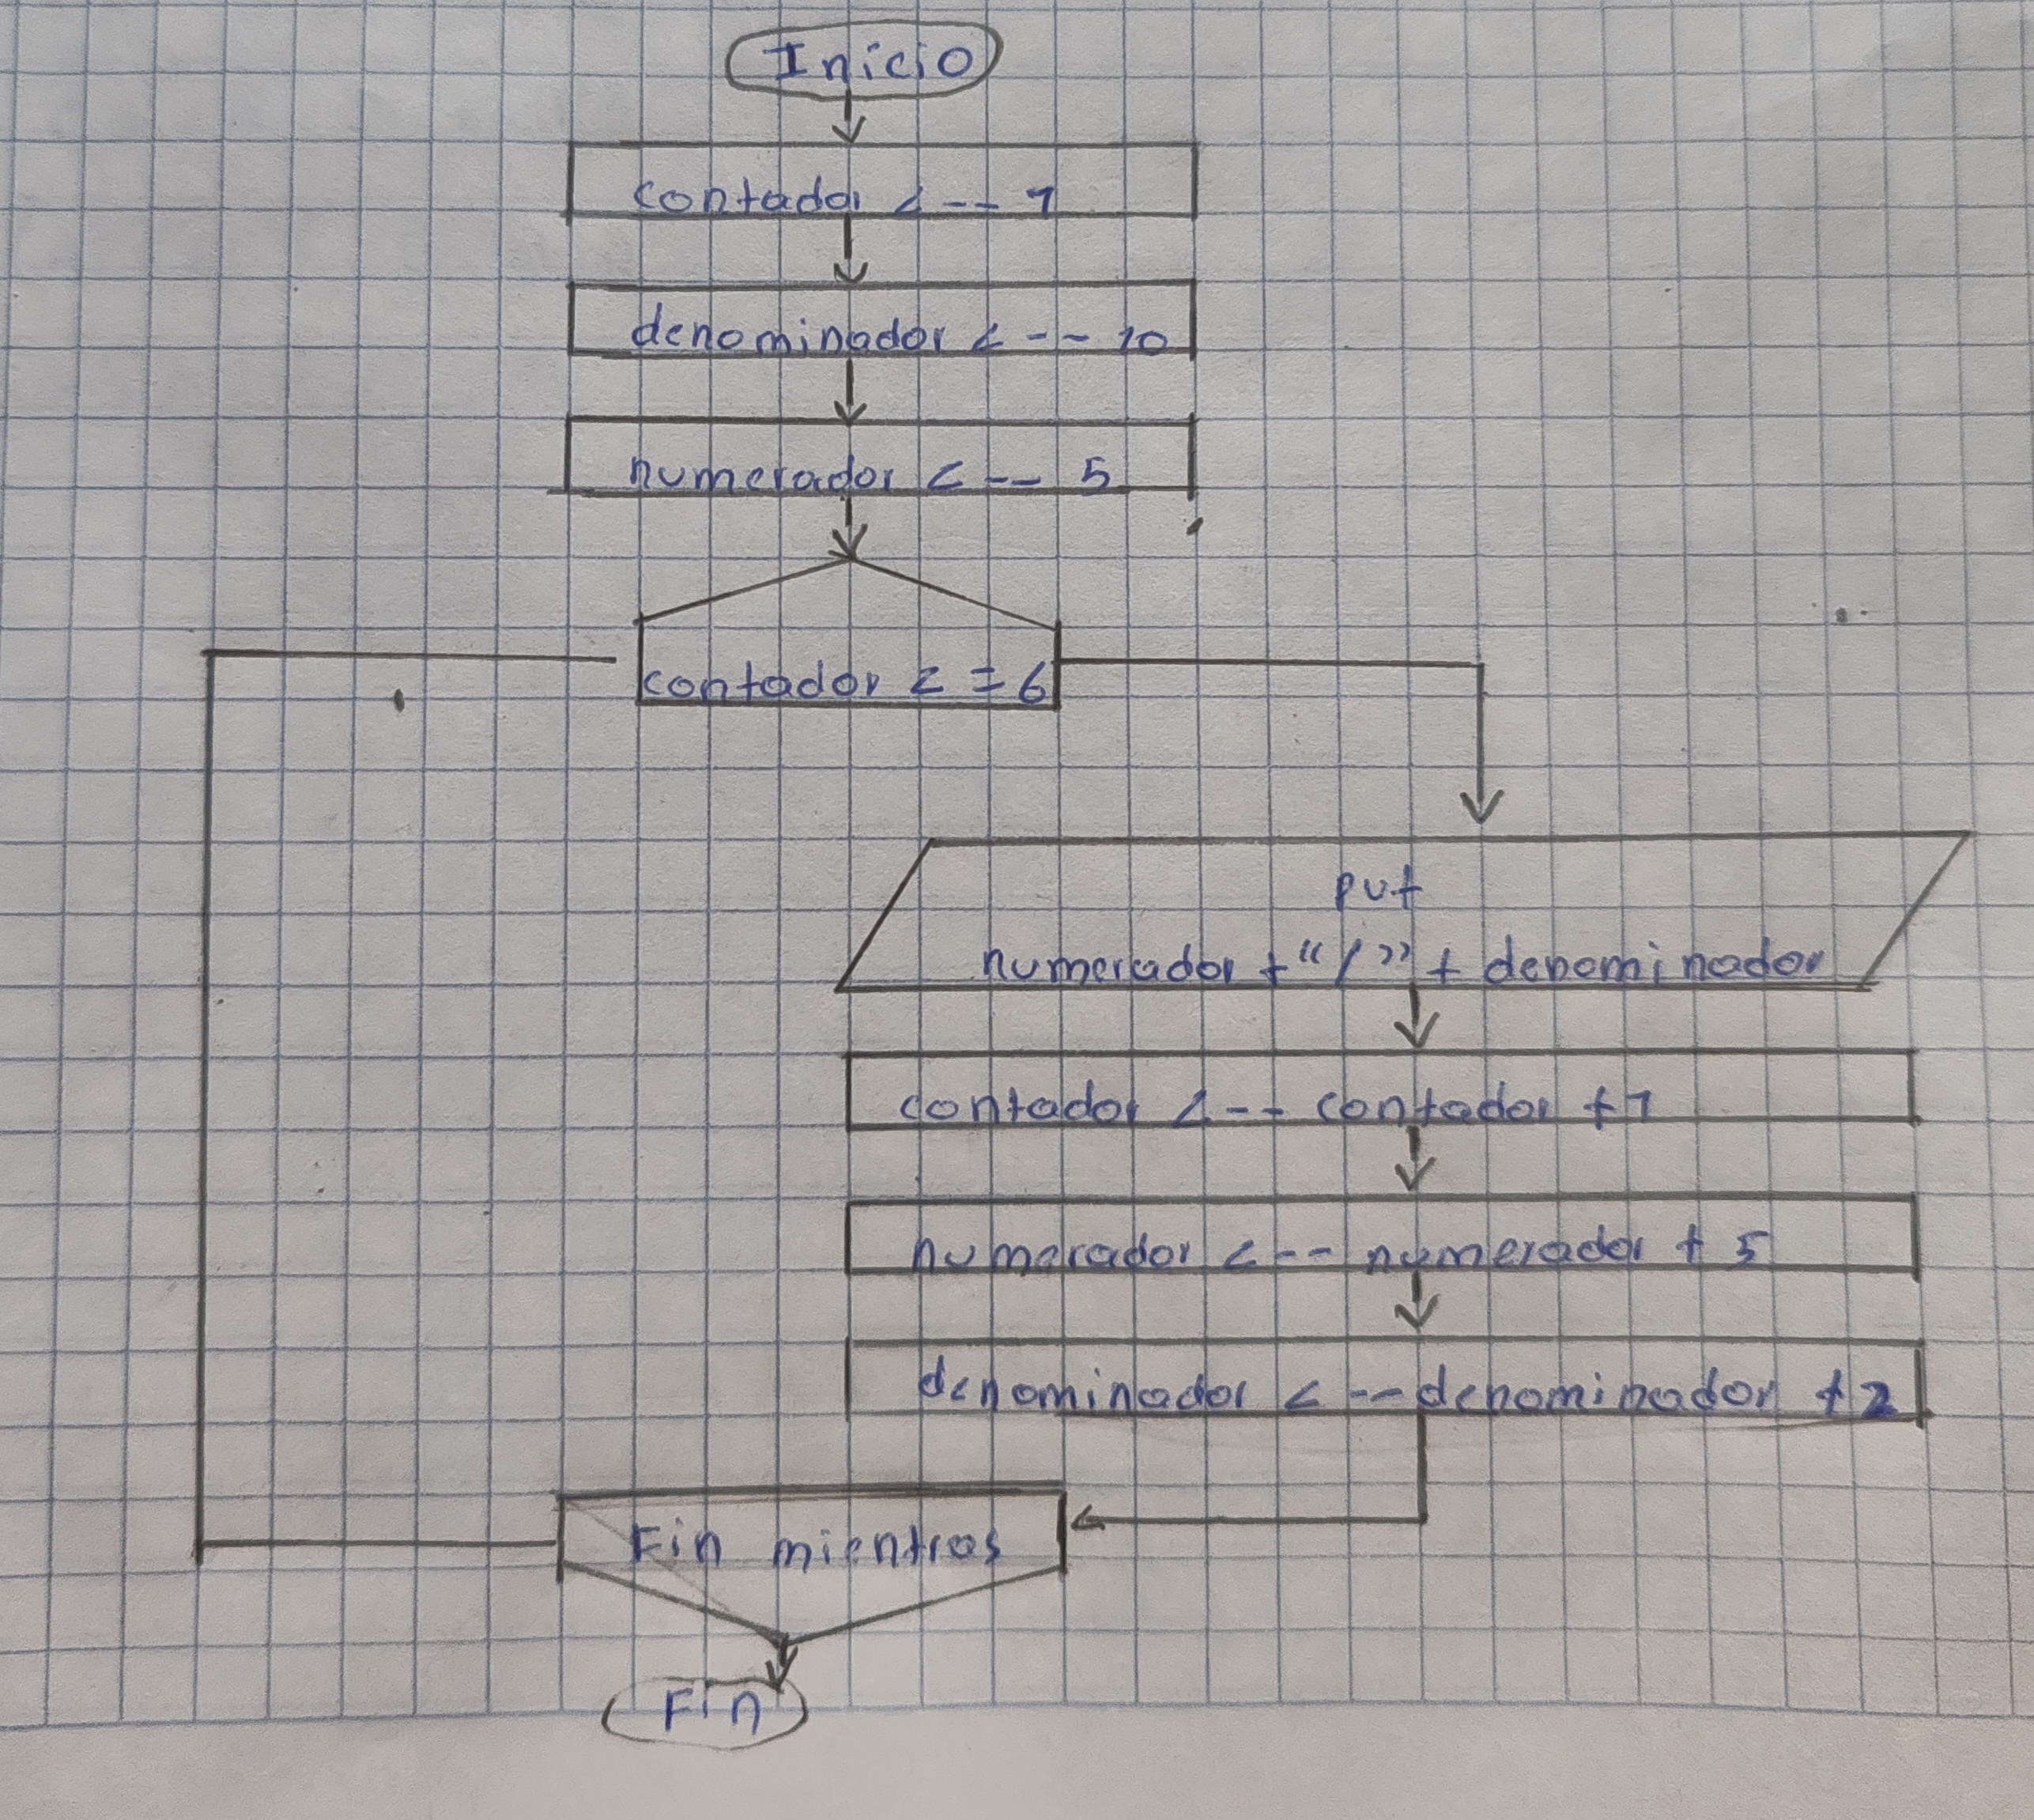 Inicio
contador <-- 1
denominador <-- 10
numerador <-- 5
contador <=6
put
numerador +"/"+ denominador
contador <-- contador +1
numerador <-- numerador + 5
denominador <-- denominador +2
Fin mientras
Fin